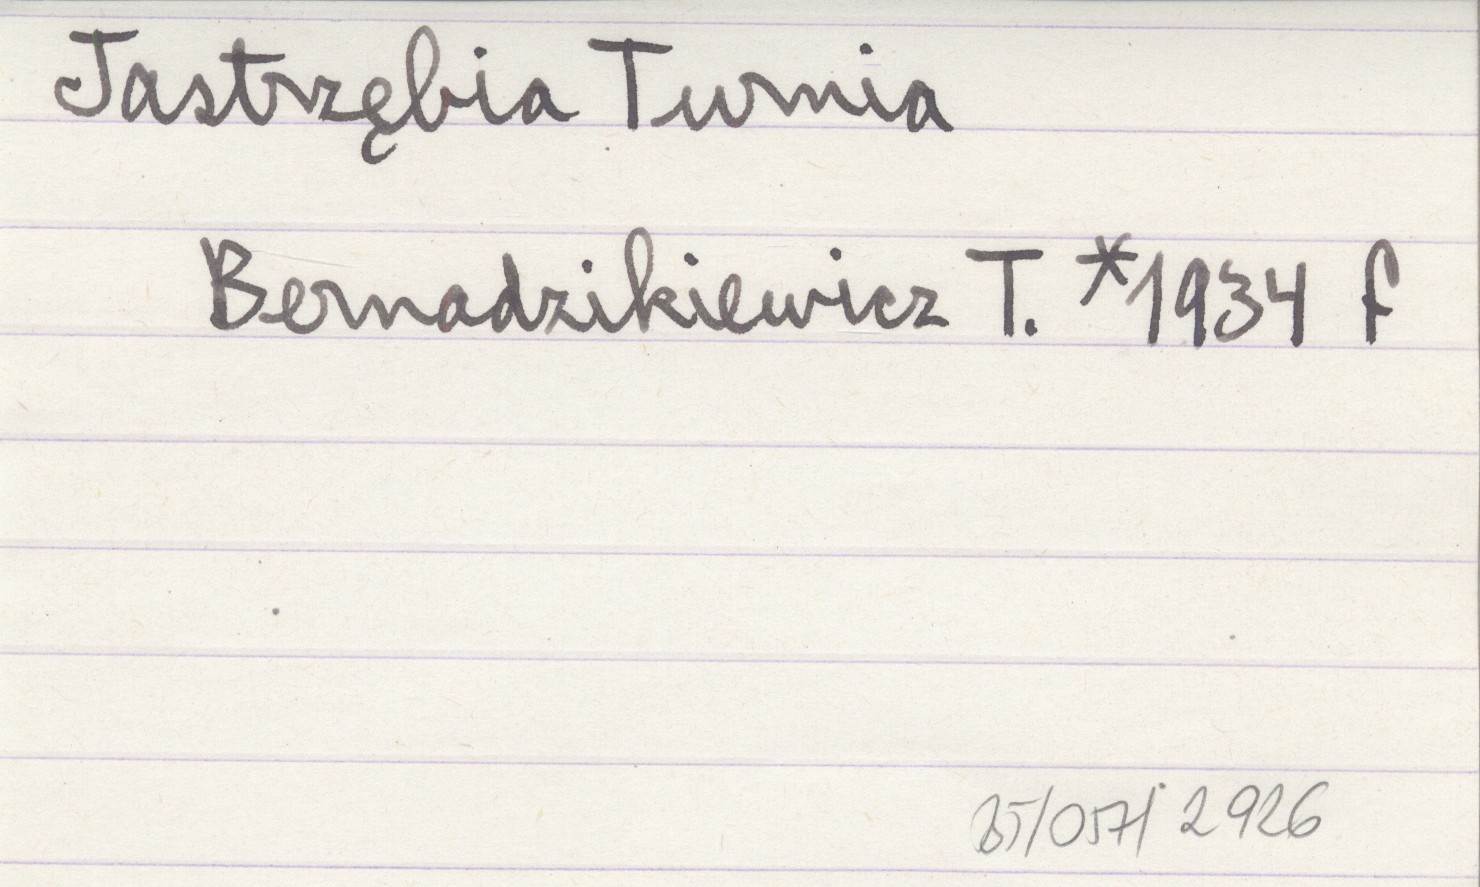 Jastrzębia Turnia
Bernadzikiewicz T. *1934 f
85/057/ 2926